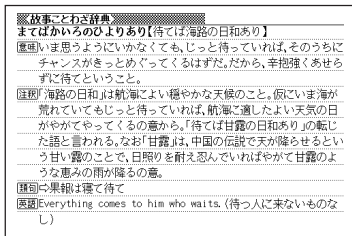 故事ことわざ辞典
まてばかいろのひよりあり【待てば海路の日和あり】
意味いま思うようにいかなくても、じっと待っていれば、そのうちに
チャンスがきっとめぐってくるはずだ。だから、辛抱強くあせら
ずに待てということ。
注釈「海路の日和」は航海によい穏やかな天候のこと。仮にいま海が
荒れていてもじっと待っていれば、航海に適したよい天気の日
がやがてやってくるの意から。「待てば甘露の日和あり」の転じ
た語と言われる。なお「甘露」は、中国の伝説で天が降らせるとい
う甘い露のことで、日照りを耐え忍んでいればやがて甘露のよ
うな恵みの雨が降るの意。
類句⇨果報は寝て待て
英語Everything comes to him who waits. (待つ人に来ないものな
し)